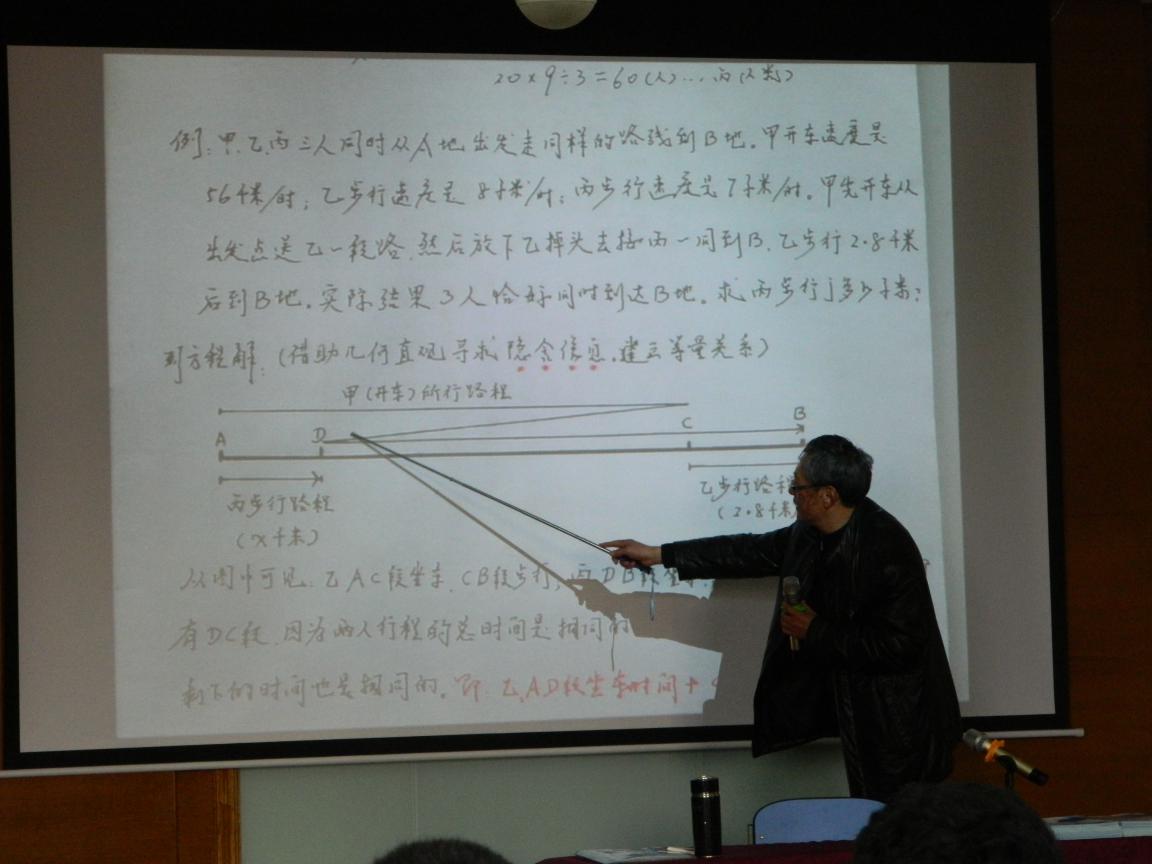 20×9÷3=60(人)…丙(人数)
例:甲、乙、丙三人同时从A地出发走同样的路线到B地。甲开车速度是
56千米/时;乙步行速度是8千米/时;丙步行速度是7千米/时。甲先开车从
出发点送乙一段路,然后放下乙掉头去接丙一同到B,乙步行2.8千米
后到B地。实际结果3人恰好同时到达B地。求丙步行了多少千米?
列方程解:(借助几何直观寻求隐含信息,建立等量关系)
甲(开车)所行路程
A D C B
丙步行路程
(x千米)
乙步行路程
(2.8千米
从图中可见:乙AC段坐车,CB段步行;丙DB段坐车
有DC段,因为两人行程的总时间是相同的
剩下的时间也是相同的。即:乙AD段坐车时间+